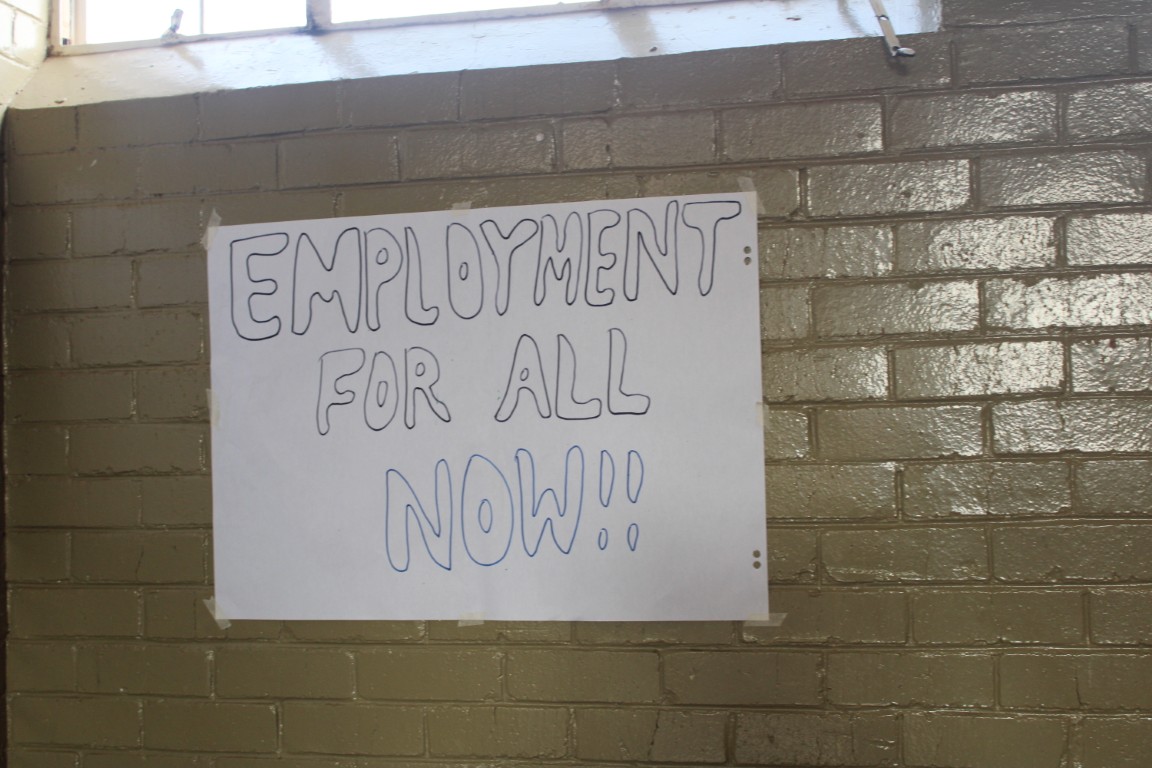 EMPLOYMENT
FOR ALL
NOW!!